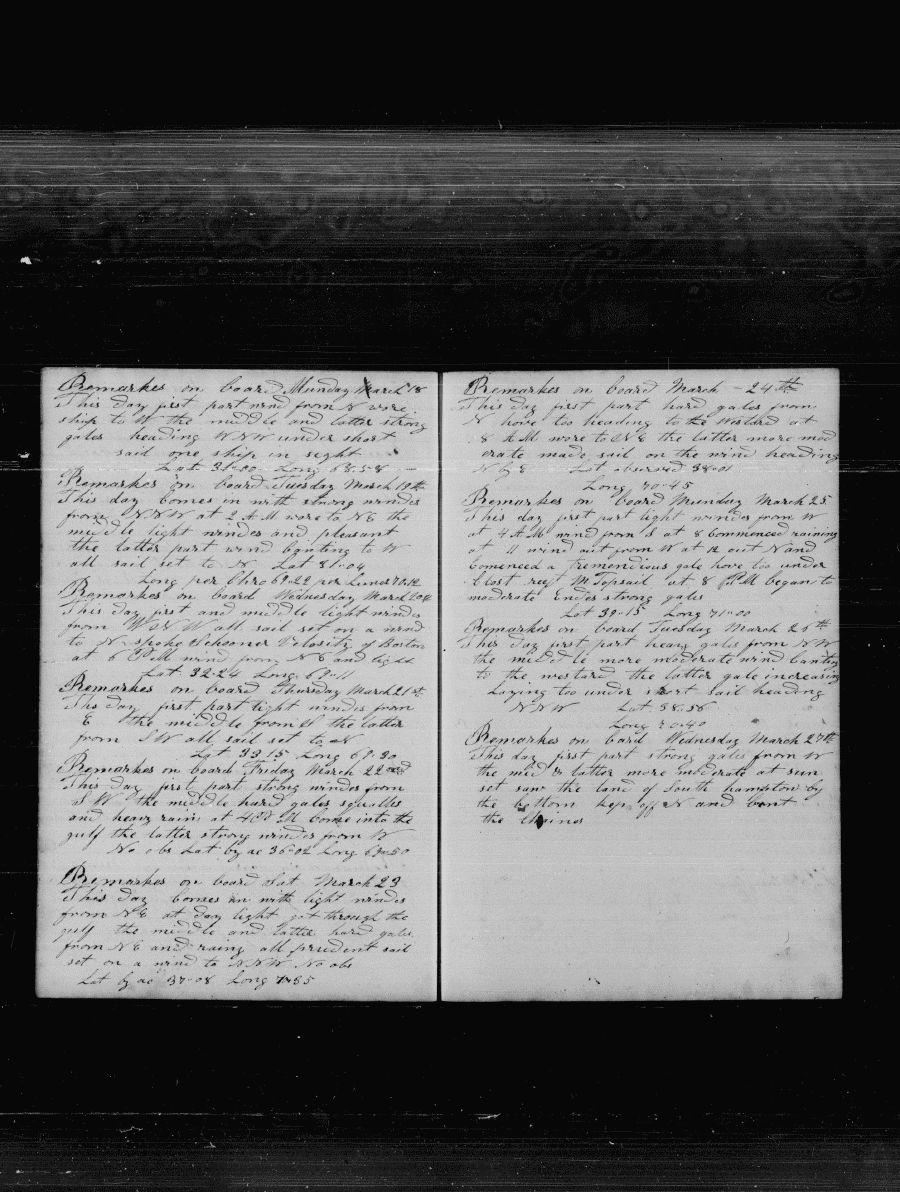 Remarkes on board Munday March 18
This day first part wind from N wore
ship to W the middle and latter strong
gales heading WNW under short
said one ship in sight
Lat 31-00 Long 68-58
Remarkes on board Tuesday March 19th
This day comes in with strong windes
from NNW at 2 AM wore to NE the
middle light windes and pleasant
the latter part wind banting to W
all sail set to N Lat 31-04
Long per Chro 69-22 per Lunar 70-12
Remarkes on board Wednesday March 20th
This day first and middle light windes
from WNW all sail set on a wind
to N spoke Schooner Velosity of Boston
at 6 PM wind from NE and light
Lat 32-24 Long
Remarkes on board Thursday March 21st
This day first part light windes from
E the middle from S the latter
from SW all sail set to N
Lat 33-15 Long 69-30
Remarkes on board Friday March 22nd
This day first part strong windes from
SW the middle hard gales squalles
and heavy rain at 4 PM come into the
gulf the latter strong windes from W
No obs Lat by ac 36-02 Long 69-50
Remarkes on board Sat March 23
This day comes in with light windes
from NE at day light got through the
gulf the middle and latter hard gales
from NE and rainy all prudent sail
set on a wind to NNW No obs
Lat by ac 37-08 Long
Remarkes on board March - 24th
This day first part hard gales from
N hove too heading to the Westard at
8 AM wore to NE the latter more mod
erate made sail on the wind heading
N by E Lat observed 38-01
Long 70-45
Remarkes on board Munday March 25
This day first part light windes from W
at 4 AM wind from S at 8 Commenced raining
at 11 wind out from W at 12 out N and
Comenced a tremendious gale hove too under
Clost reef M topsail at 8 PM began to
moderate Endes strong gales
Lat 39-15 Long 71-00
Remarkes on board Tuesday March 26th
This day first part heavy gales from NW
the middle more moderate wind banting
to the westard the latter gale increasing
Laying too under short sail heading
NNW Lat 38-56
Long 70-40
Remarkes on bard Wednesday March 27th
This day first part strong gales from W
the mid & latter more moderate at sun
set saw the land of South hampton by
the bottom kep off N and bent
the Chaines